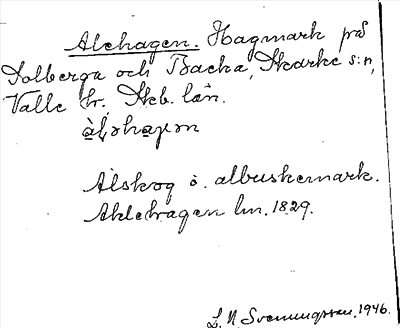 Alehagen. Hagmark på
Solberga och Backa, Skarke s:n,
Valle hr. Skb. län.
Alskog o. albuskemark.
Ahlehagen lm. 1829.
1946.